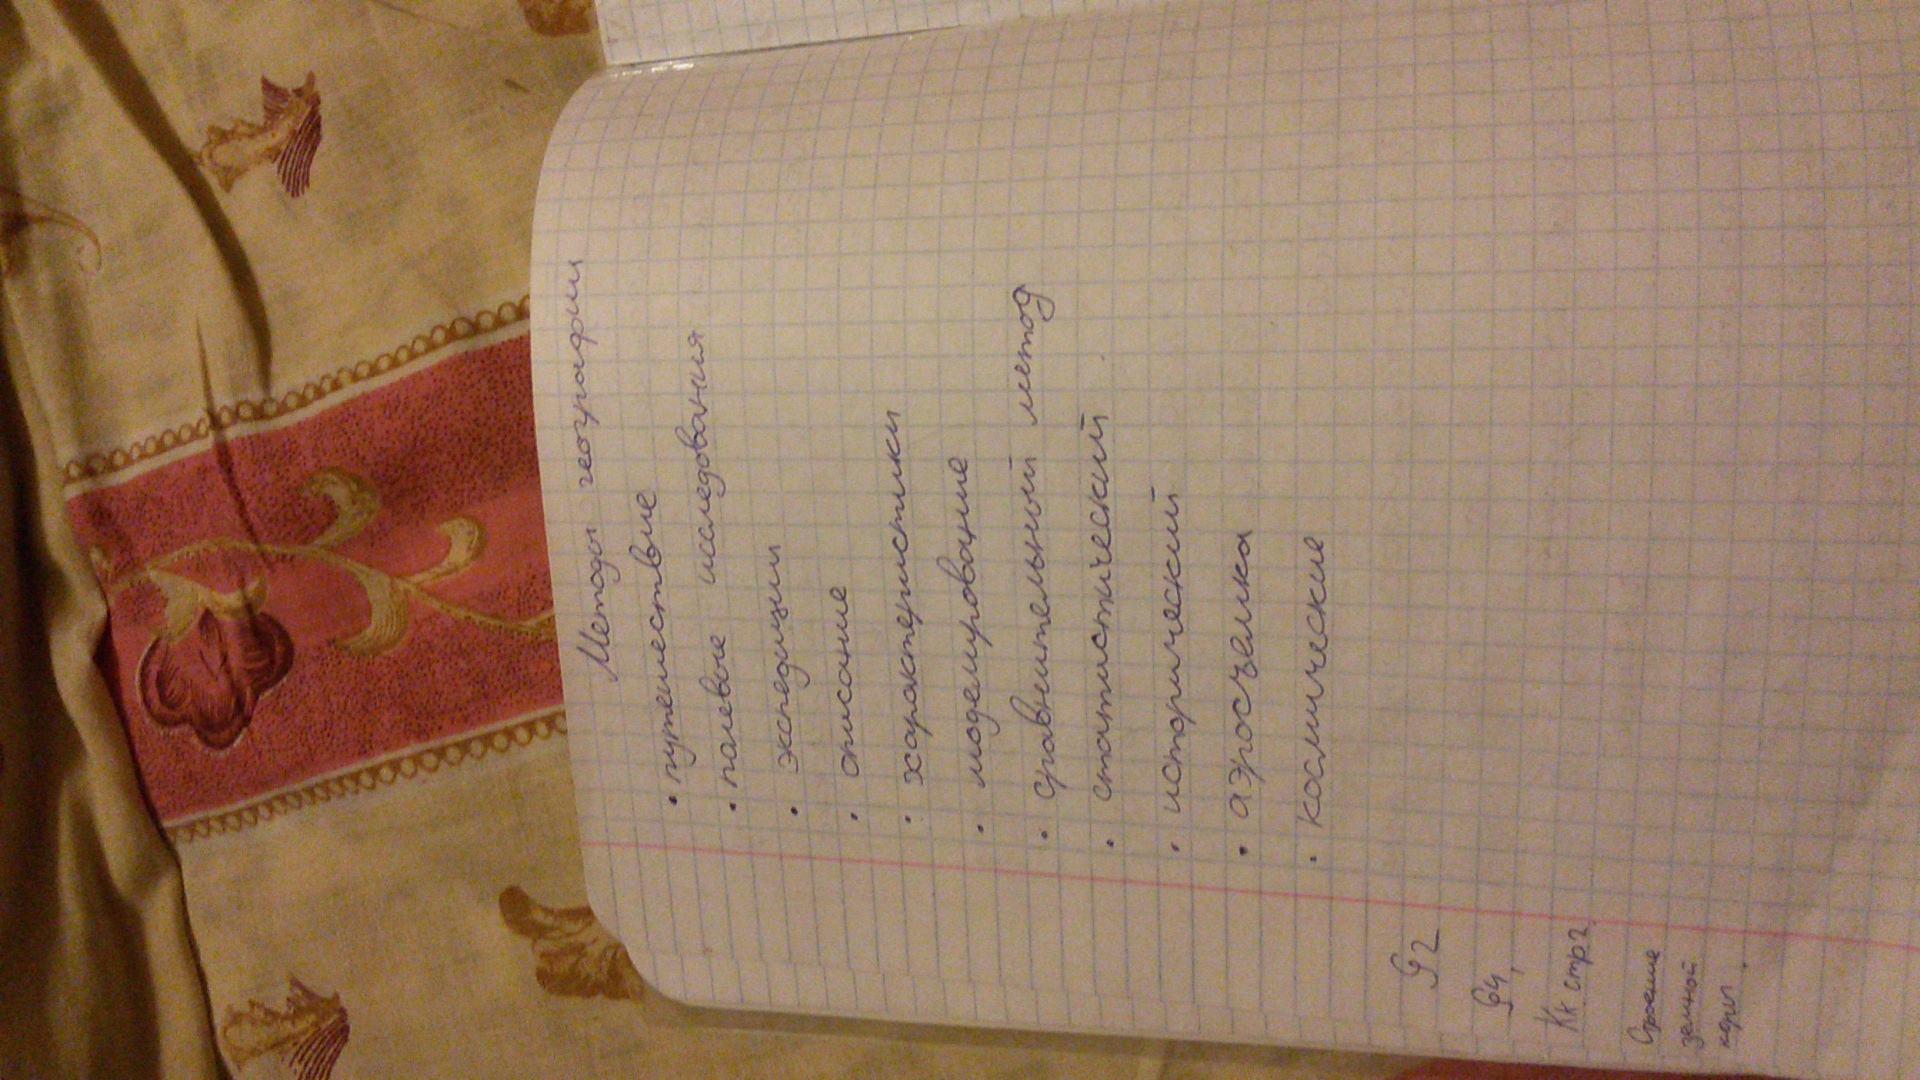 Методы географии
• путешествие
• полевые исследования
• экспедиции
• описание
• характеристики
• моделирование
• сравнительный метод
• статистический
• исторический
• аэросъемка
• космические
§2
§4,
Кк стр2
Строение
земной
коры.